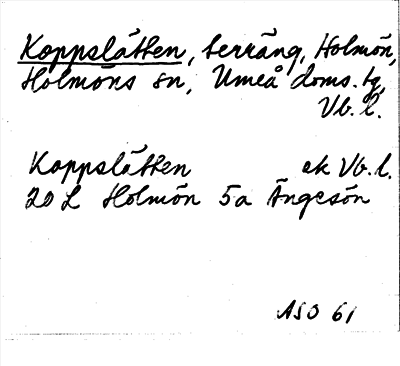 Koppslåtten, terräng, Holmön,
Holmöns sn, Umeå doms. tg,
Vb. l.
Koppslåtten ek Vb. l.
20 L Holmön 5a Ängesön
ASO 61